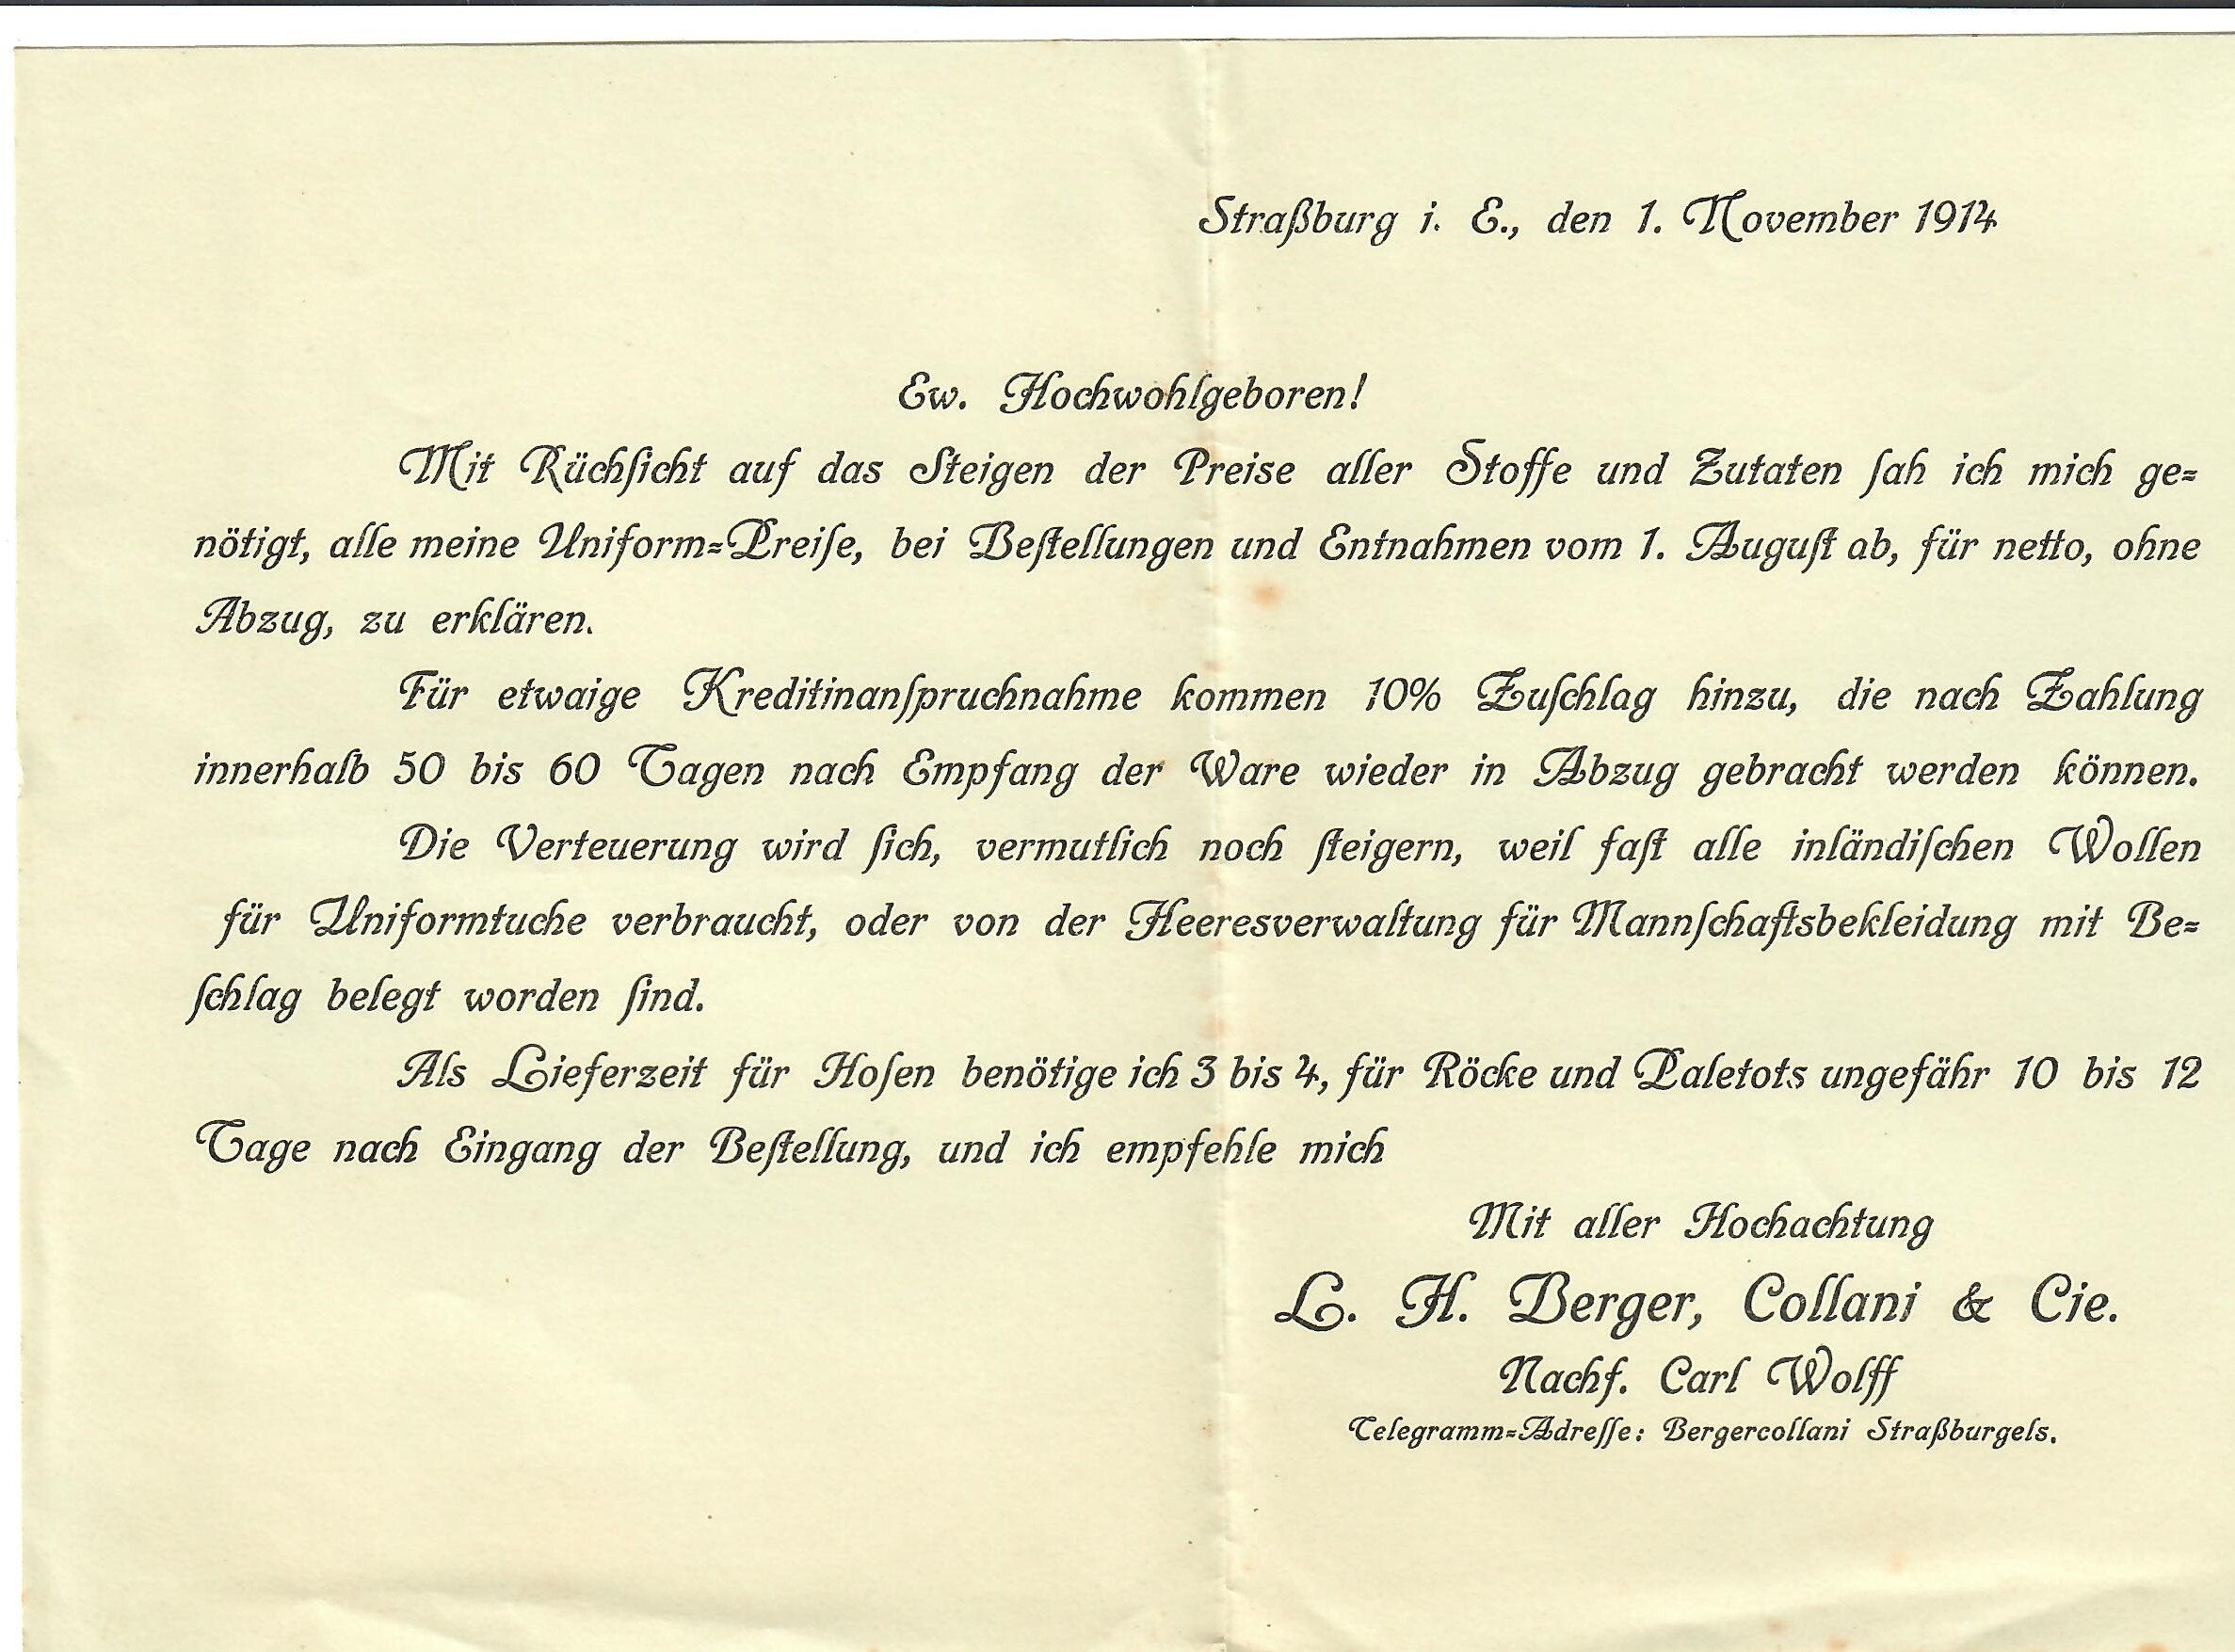 Straßburg i. E., den 1. November 1914
Ew. Hochwohlgeboren!
Mit Rüchſicht auf das Steigen der Preise aller Stoffe und Zutaten ſah ich mich ge=
nötigt, alle meine Uniform=Preiſe, bei Beſtellungen und Entnahmen vom 1. Auguſt ab, für netto, ohne
Abzug, zu erklären.
Für etwaige Kreditinanſpruchnahme kommen 10% Zuſchlag hinzu, die nach Zahlung
innerhalb 50 bis 60 Tagen nach Empfang der Ware wieder in Abzug gebracht werden können.
Die Verteuerung wird ſich, vermutlich noch ſteigern, weil faſt alle inländiſchen Wollen
für Uniformtuche verbraucht, oder von der Heeresverwaltung für Mannſchaftsbekleidung mit Be=
ſchlag belegt worden ſind.
Als Lieferzeit für Hoſen benötige ich 3 bis 4, für Röcke und Paletots ungefähr 10 bis 12
Tage nach Eingang der Beſtellung, und ich empfehle mich
Mit aller Hochachtung
L. H. Berger, Collani & Cie.
Nachf. Carl Wolff
Telegramm=Adreſſe: Bergercollani Straßburgels.